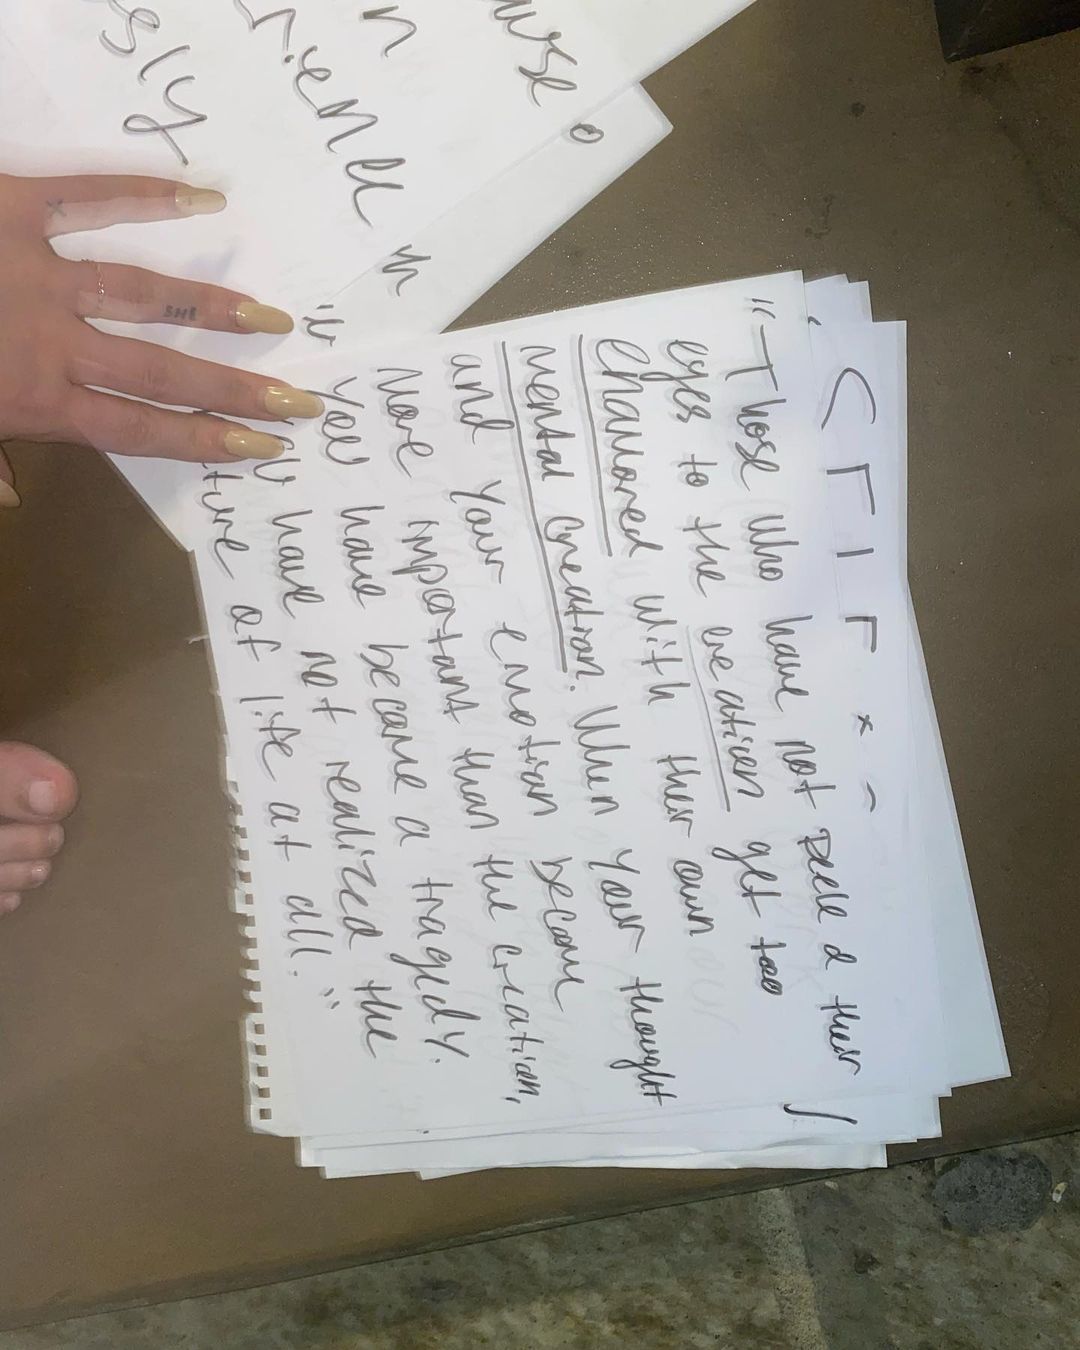 "Those who have not peeled their
eyes to the creation get too
enamored with their own
mental creation. When your thought
and your emotion become
more important than the creation,
you have become a tragedy.
ou have not realized the
ture of life at all."
ause o
n
rience
esly
SHE